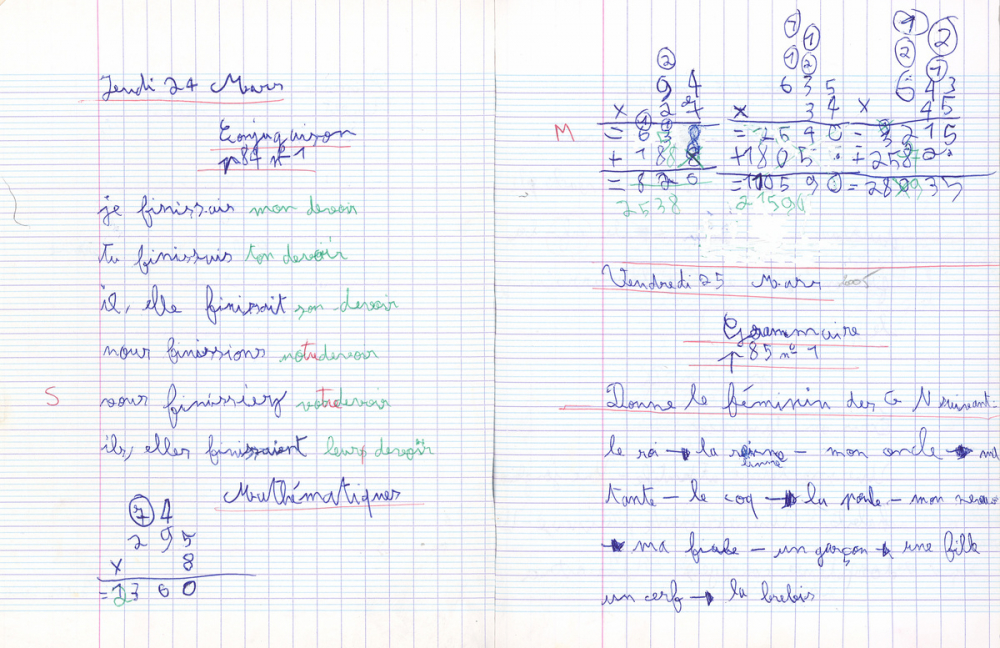 Jeudi 24 Mars
Conjugaison
p 84 n° 1
je finissais mon devoir
tu finissais ton devoir
il, elle finissait son devoir
nous finissions notre devoir
S
vous finissiez votre devoir
ils, elles finissaient leurs devoir
Mathématiques
7 4
2 9 5
x 8
= 2 3 6 0
M
2
9 4
x 2 7
= 6 5 8
+ 1 8 8
= 8 2 0
2 5 3 8
1 1
1 2
6 3 5
x 3 4
= 2 5 4 0
+ 1 8 0 5 .
2 1 5 9 0
1 2
2 1
6 4 3
x 4 5
= 3 2 1 5
+ 2 5 8 2 .
= 2 8 9 3 5
Vendredi 25 Mars 2005
Grammaire
85 n° 1
Donne le féminin des G N suivant.
le roi → la - mon oncle → ma
tante - le coq → la poule - mon neveu
→ ma - un garçon → une fille
un cerf → la brebis